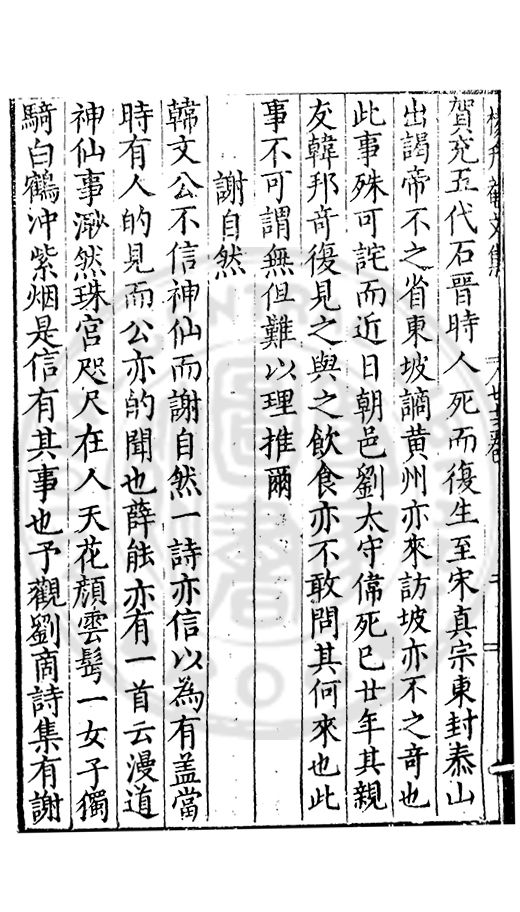 賀兖五代石晉時人死而復生至宋真宗東封泰山
出謁帝不之省東坡謫黃州亦來訪坡亦不之奇也
此事殊可詫而近日朝邑劉太守偉死已廿年其親
友韓邦奇復見之與之飲食亦不敢問其何來也此
事不可謂無但難以理推爾
謝自然
韓文公不信神仙而謝自然一詩亦信以為有盖當
時有人的見而公亦的聞也薛能亦有一首云漫道
神仙事渺然珠宮咫尺在人天花顏雲髩一女子獨
騎白鶴冲紫烟是信有其事也予觀劉商詩集有謝